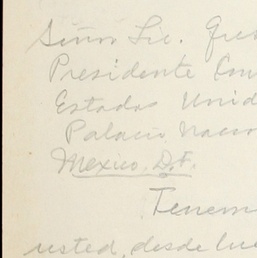 Señor Lic. Gus
Presidente Con
Estados Unid
Palacio Nacio
Mexico, D.F.
Tenem
usted, desde lue